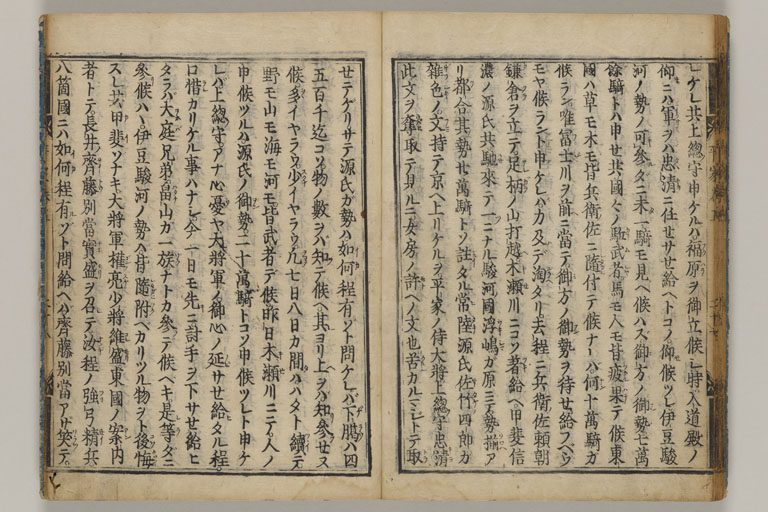 ヒケレ共上總守申ケルハ福原ヲ御立候シ時入道殿ノ
仰ニハ軍ヲハ忠清ニ任セサセ給ヘトコソ仰候ツレ伊豆駿
河ノ勢ノ可参タニ未一騎モ見ヘ候ハス御方ノ御勢七萬
餘騎トハ申セ共國々ノ駈武者馬モ人モ皆疲果テ候東
國ハ草モ木モ皆兵衛佐ニ隨付テ候ナレハ何十萬騎カ
候ラン唯冨士川ヲ前ニ當テ御方ノ御勢ヲ待セ給フヘウ
モヤ候ラント申ケレハ力及テ淘タリ去程ニ兵衛佐頼朝
鎌倉ヲ立テ足柄ノ山打越木瀬川ニコソ著給ヘ甲斐信
濃ノ源氏共馳來テ一ニナル駿河國浮嶋カ原ニテ勢揃ア
リ都合其勢廿萬騎トソ註タル常陸源氏佐竹四郎カ
雑色ノ文持テ京ヘ上リケルヲ平家ノ侍大將上總守忠清
此文ヲ奪取テ見ルニ女房ノ許ヘノ文也苦カルマシトテ取
セテケリサテ源氏カ勢ハ如何程有ソト問ケレハ下臈ハ四
五百千迄コソ物ノ數ヲハ知テ候ヘ其ヨリ上ヲハ知参セス
候多イヤラウ少イヤラウ凡七日八日カ間ハハタト續テ
野モ山モ海モ河モ皆武者テ候昨日木瀬川ニテ人ノ
申候ツルハ源氏ノ御勢二十萬騎トコソ申候ツレト申ケ
レハ上總守アナ心憂ヤ大將軍ノ御心ノ延サセ給タル程
口惜カリケル事ハナシ今一日モ先ニ討手ヲ下サセ給ヒ
タラハ大庭兄弟畠山カ一族ナトカ参テ候ヘキ是等タニ
参候ハヽ伊豆駿河ノ勢ハ皆隨附ヘカリツル物ヲト後悔
スレ共甲斐ソナキ大將軍權亮少將維盛東國ノ案内
者トテ長井齊藤別當實盛ヲ召テ汝程ノ強弓精兵
八箇國ニハ如何程有ソト問給ヘハ齊藤別當アサ笑テ